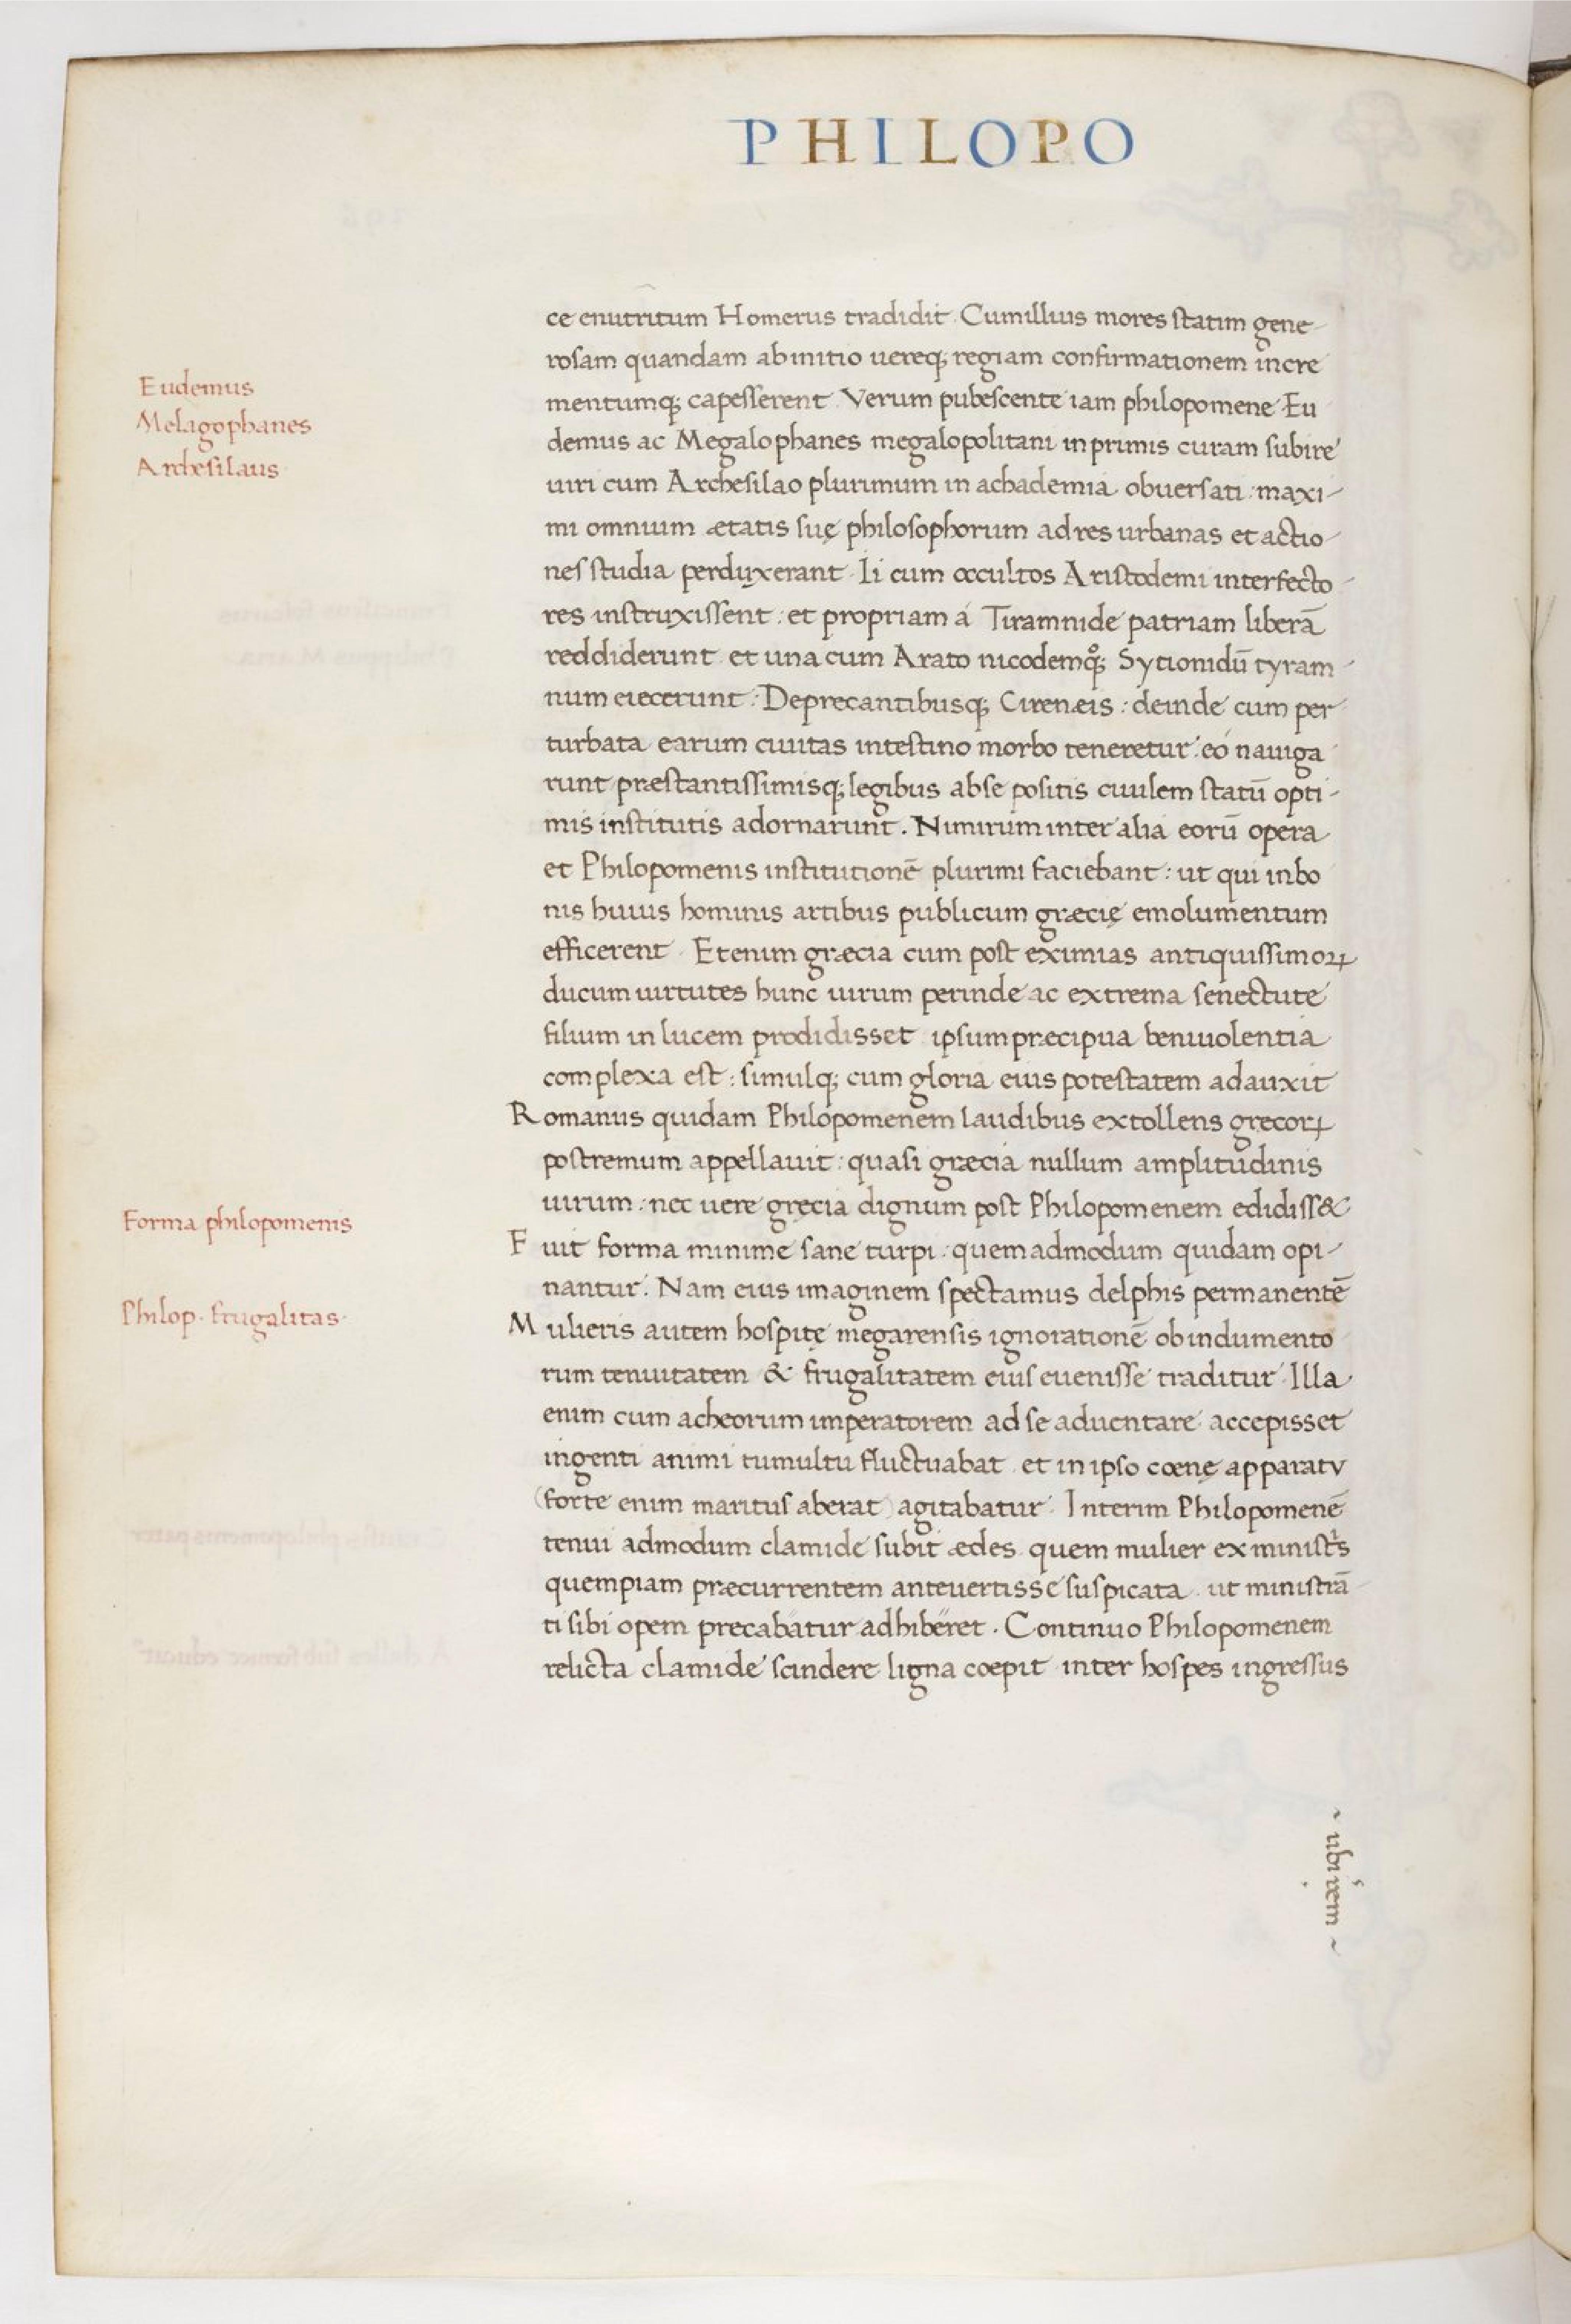 PHILOPO
ce enutritum Homerus tradidit. Cumillius mores statim gene-
rosam quandam abinitio uereq; regiam confirmationem incre
Eudemus
mentumq; capesserent. Verum pubescente iam philopomene Eu
Melagophanes
demus ac Megalophanes megalopolitani inprimis curam subire
Archesilaus
uiri cum Archesilao plurimum in achademia obuersati: maxi-
mi omnium ætatis suę philosophorum ad res urbanas et actio-
nes studia perduxerant. Ii cum occultos Aristodemi interfecto-
res instruxissent: et propriam á Tiramnide patriam liberā
reddiderunt et una cum Arato nicodemoq; Sytionidū tyram-
num eiecerunt: Deprecantibusq; Cirenæis: deinde cum per-
turbata earum ciuitas intestino morbo teneretur: eó nauiga
runt præstantissimisq; legibus abse positis ciuilem statū opti-
mis institutis adornarunt. Nimirum inter alia eorū opera
et Philopomenis institutionē plurimi faciebant: ut qui inbo
nis huius hominis artibus publicum græcię emolumentum
efficerent. Etenim græcia cum post eximias antiquissimoꝝ
ducum uirtutes hunc uirum perinde ac extrema senectute
filium in lucem prodidisset ipsum præcipua beniuolentia
complexa est: simulq; cum gloria eius potestatem adauxit
Romanus quidam Philopomenem laudibus extollens grecoꝝ
postremum appellauit: quasi græcia nullum amplitudinis
uirum: nec uere gręcia dignum post Philopomenem edidiss&
Forma philopomenis
Fuit forma minime sane turpi: quemadmodum quidam opi-
nantur. Nam eius imaginem spectamus delphis permanentē
Philop. frugalitas.
Mulieris autem hospitę megarensis ignorationē ob indumento
rum tenuitatem & frugalitatem eius euenisse traditur. Illa
enim cum acheorum imperatorem ad se aduentare accepisset
ingenti animi tumultu fluctuabat. et in ipso cœnę apparatu
(forte enim maritus aberat) agitabatur. Interim Philopomenē
tenui admodum clamide subit ædes. quem mulier ex ministris
quempiam præcurrentem anteuertisse suspicata. ut ministrā
ti sibi opem precabatur adhiberet. Continuo Philopomenem
relicta clamide scindere ligna coepit inter hospes ingressus
~ ubi rem ~